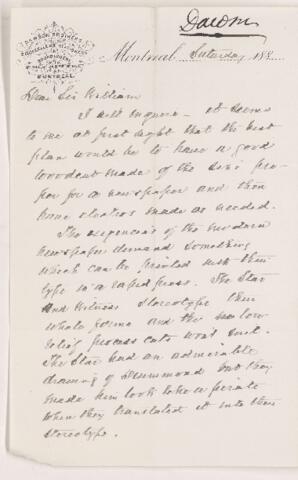 Dawson
DAWSON BROTHERS
BOOKSELLERS
MONTREAL
Montreal Saturday 188
Dear Sir William
I will enquire – it seems
to me at first sight that the best
plan would be to have a good
woodcut made of the size pro-
per for a newspaper and then
have electros made as needed.
The exigencies of the modern
newspaper demand something
which can be printed with their
type in a rapid press. The Star
and Witness stereotype their
whole forme and the low
relief process cuts won't suit.
The Star had an admirable
drawing of Drummond but they
made him look like a pirate
when they translated it into their
stereotype.